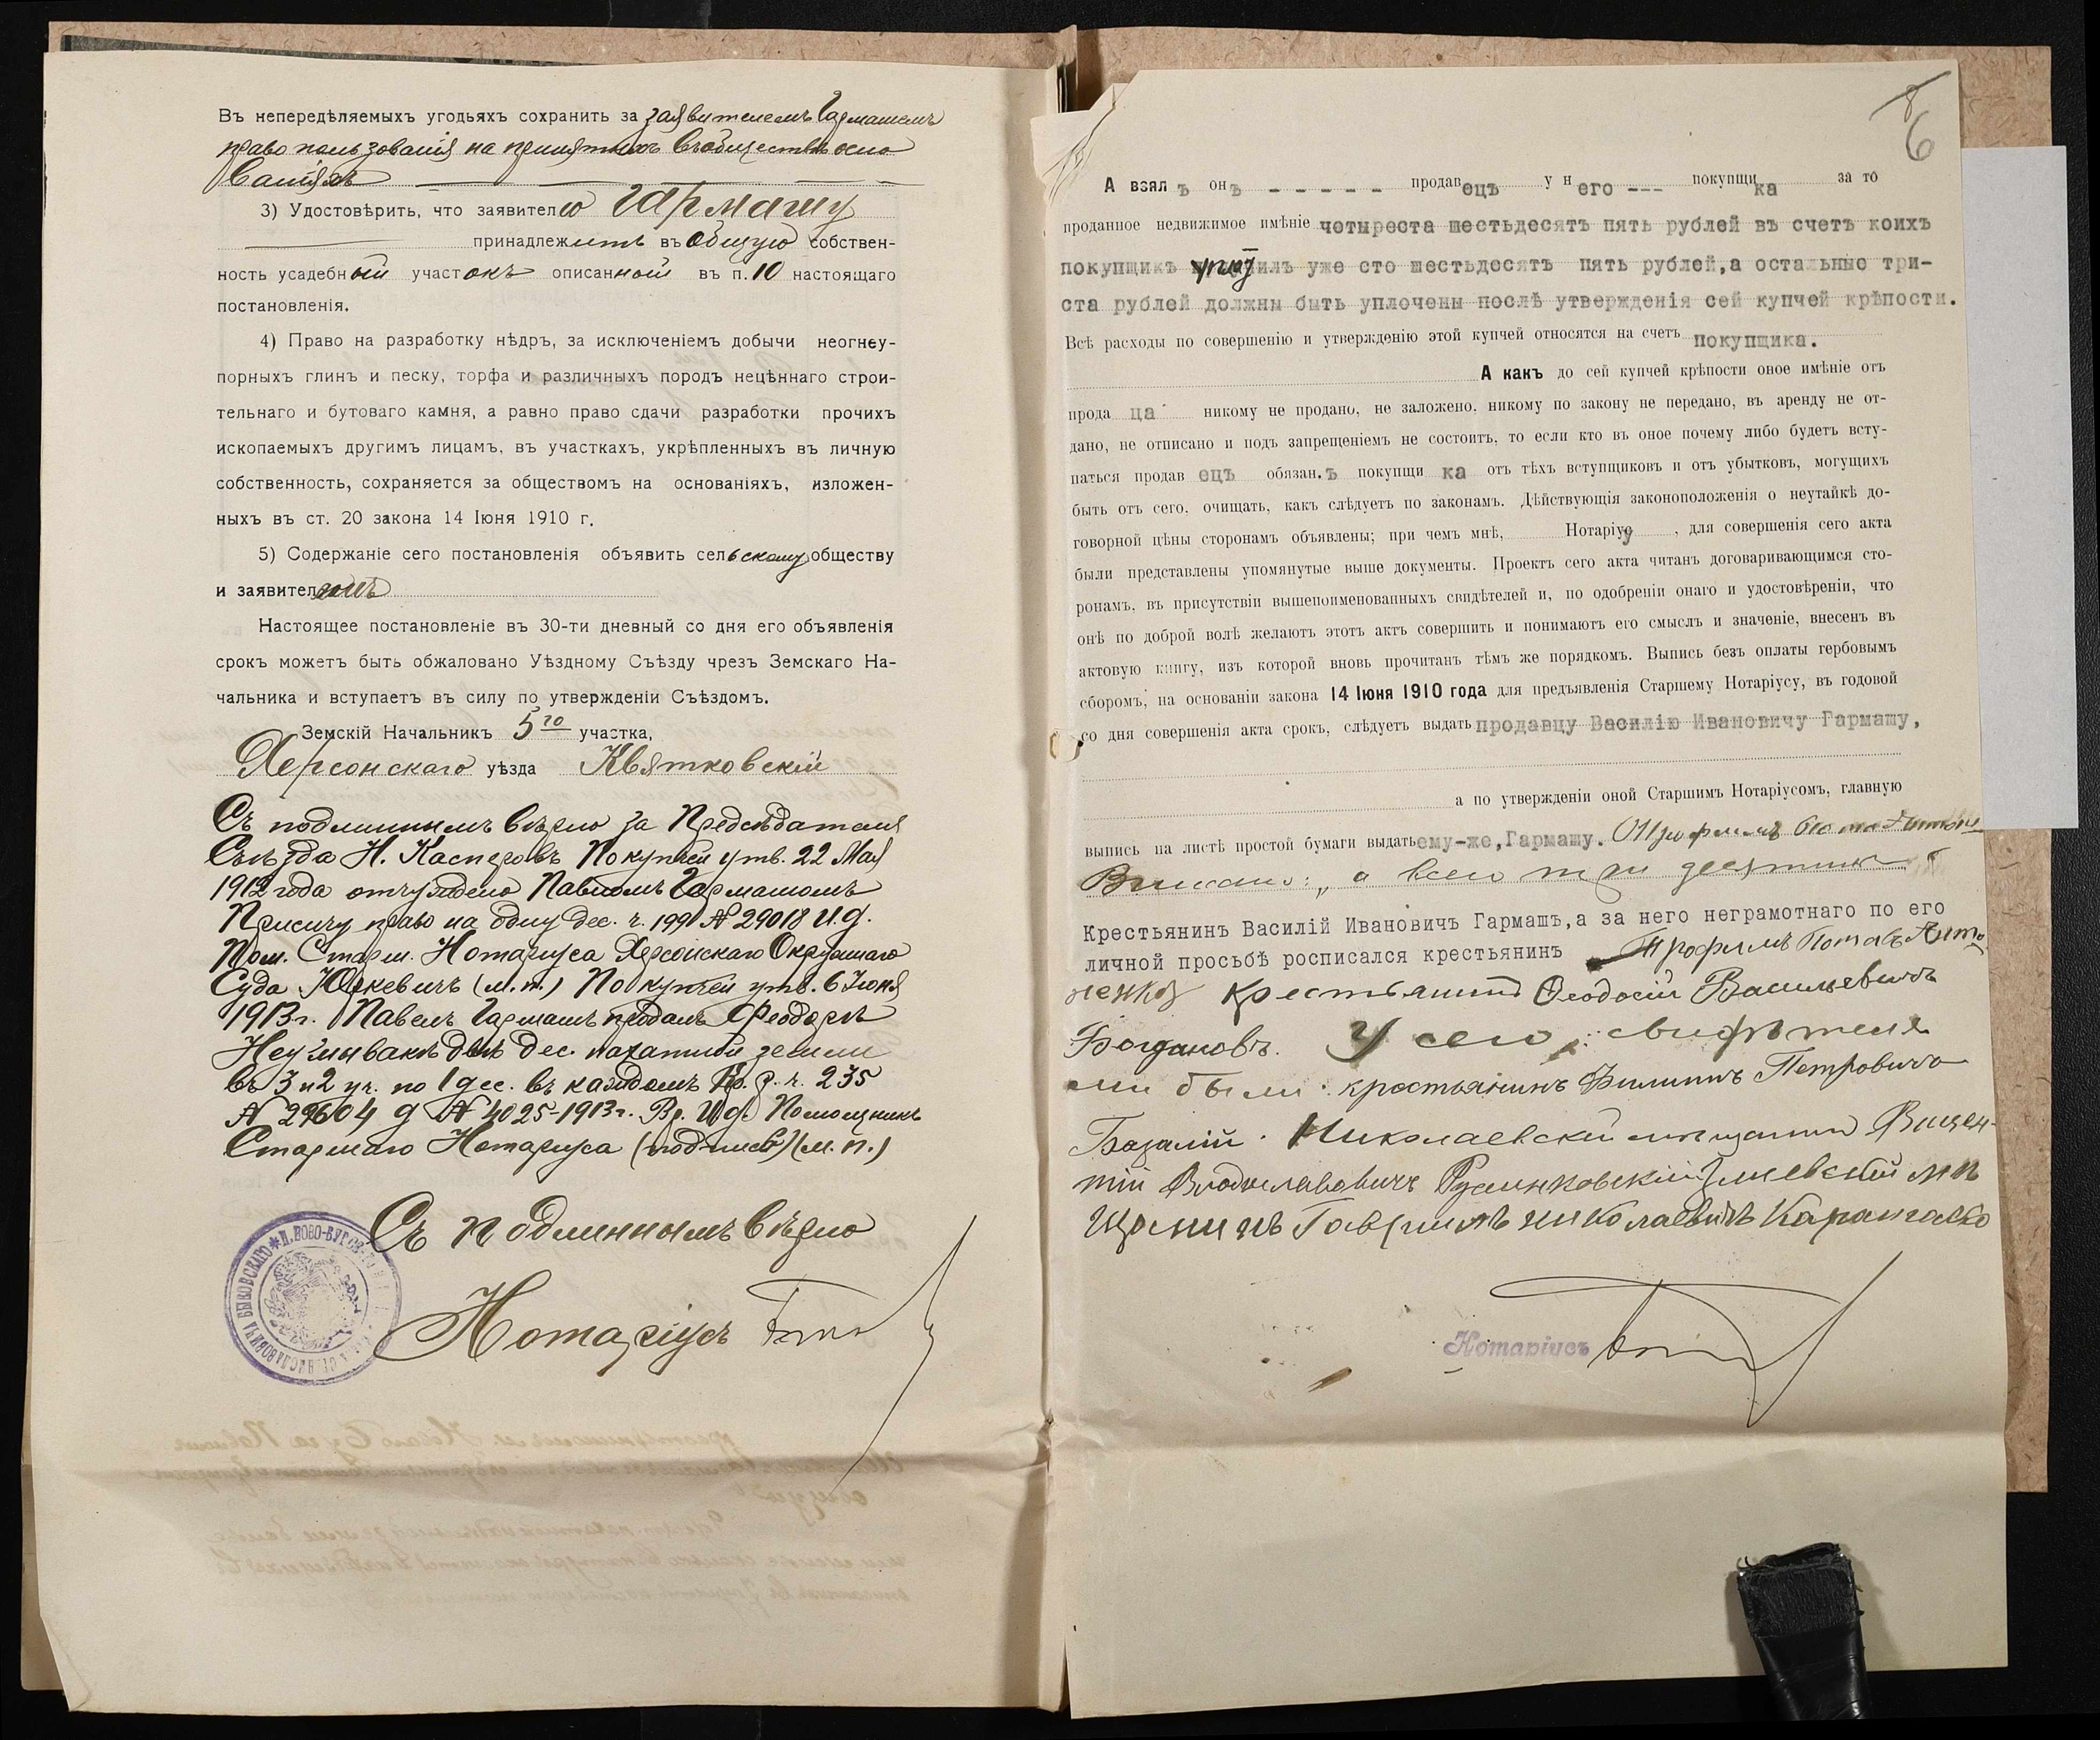 Въ непередѣляемыхъ угодьяхъ сохранить за заявителемъ Гармашемъ
право пользованія на принятыхъ въ обществѣ осно
ваніяхъ
3) Удостовѣрить, что заявителю Гармашу
принадлежитъ въ общую собствен-
ность усадебный участокъ описанный въ п. 10 настоящаго
постановленія.
4) Право на разработку нѣдръ, за исключеніемъ добычи неогнеу-
порныхъ глинъ и песку, торфа и различныхъ породъ нецѣннаго строи-
тельнаго и бутоваго камня, а равно право сдачи разработки прочихъ
ископаемыхъ другимъ лицамъ, въ участкахъ, укрѣпленныхъ въ личную
собственность, сохраняется за обществомъ на основаніяхъ, изложен-
ныхъ въ ст. 20 закона 14 Іюня 1910 г.
5) Содержаніе сего постановленія объявить сельскому обществу
и заявителямъ
Настоящее постановленіе въ 30-ти дневный со дня его объявленія
срокъ можетъ быть обжаловано Уѣздному Съѣзду чрезъ Земскаго На-
чальника и вступаетъ въ силу по утвержденіи Съѣздомъ.
Земскій Начальникъ 5го участка,
Херсонскаго уѣзда Квятковскій
Съ подлиннымъ вѣрно за Предсѣдателя
Съѣзда Н. Касперовъ По купчей утв. 22 Мая
1912 года отчуждено Павломъ Гармашомъ
Присичу право на одну дес. ч. 1991 № 29018 И.д.
Пом. Старш. Нотаріуса Херсонскаго Окружнаго
Суда Юркевичъ (м.п.) По купчей утв. 6 Іюня
1913 г. Павелъ Гармашъ продалъ Феодорѣ
двѣ дес. пахатной земли
въ 3 и 2 уч. по 1 дес. въ каждомъ Кр. р. ч. 235
№ 29604 д № 4025-1913 г. Вр. И.д. Помощникъ
Старшаго Нотаріуса (подпись) (м. п.)
Съ подлиннымъ вѣрно
Нотаріусъ
8
6
А взялъ онъ - - - - - - продавецъ у него --- покупщика за то
проданное недвижимое имѣніе четыреста шестьдесятъ пять рублей въ счетъ коихъ
покупщикъ уплотилъ уже сто шестьдесятъ пять рублей, а остальные три-
ста рублей должны быть уплочены послѣ утвержденія сей купчей крѣпости.
Всѣ расходы по совершенію и утвержденію этой купчей относятся на счетъ покупщика.
А какъ до сей купчей крѣпости оное имѣніе отъ
продавца никому не продано, не заложено, никому по закону не передано, въ аренду не от-
дано, не отписано и подъ запрещеніемъ не состоитъ, то если кто въ оное почему либо будетъ всту-
паться продавецъ обязан.ъ покупщика отъ тѣхъ вступщиковъ и отъ убытковъ, могущихъ
быть отъ сего, очищать, какъ слѣдуетъ по законамъ. Дѣйствующія законоположенія о неутайкѣ до-
говорной цѣны сторонамъ объявлены; при чемъ мнѣ, Нотаріусу, для совершенія сего акта
были представлены упомянутые выше документы. Проектъ сего акта читанъ договаривающимся сто-
ронамъ, въ присутствіи вышепоименованныхъ свидѣтелей и, по одобреніи онаго и удостовѣреніи, что
онѣ по доброй волѣ желаютъ этотъ актъ совершить и понимаютъ его смыслъ и значеніе, внесенъ въ
актовую книгу, изъ которой вновь прочитанъ тѣмъ же порядкомъ. Выпись безъ оплаты гербовымъ
сборомъ, на основаніи закона 14 Іюня 1910 года для предъявленія Старшему Нотаріусу, въ годовой
со дня совершенія акта срокъ, слѣдуетъ выдать продавцу Василію Ивановичу Гармашу,
а по утвержденіи оной Старшимъ Нотаріусомъ, главную
выпись на листѣ простой бумаги выдать ему-же, Гармашу.
Вписано: „а всего три десятины
Крестьянинъ Василій Ивановичъ Гармашъ, а за него неграмотнаго по его
личной просьбѣ росписался крестьянинъ Трофимъ Потаповъ Анто
ненко крестьянинъ Феодосій Васильевичъ
Богдановъ. У сего свидѣтеля
ми были: крестьянинъ Филиппъ Петровичъ
Базалій. Николаевскій мѣщанинъ Викен-
тій Владиславовичъ Змиевской мѣ
щанинъ Гавріилъ Николаевичъ
Нотаріусъ